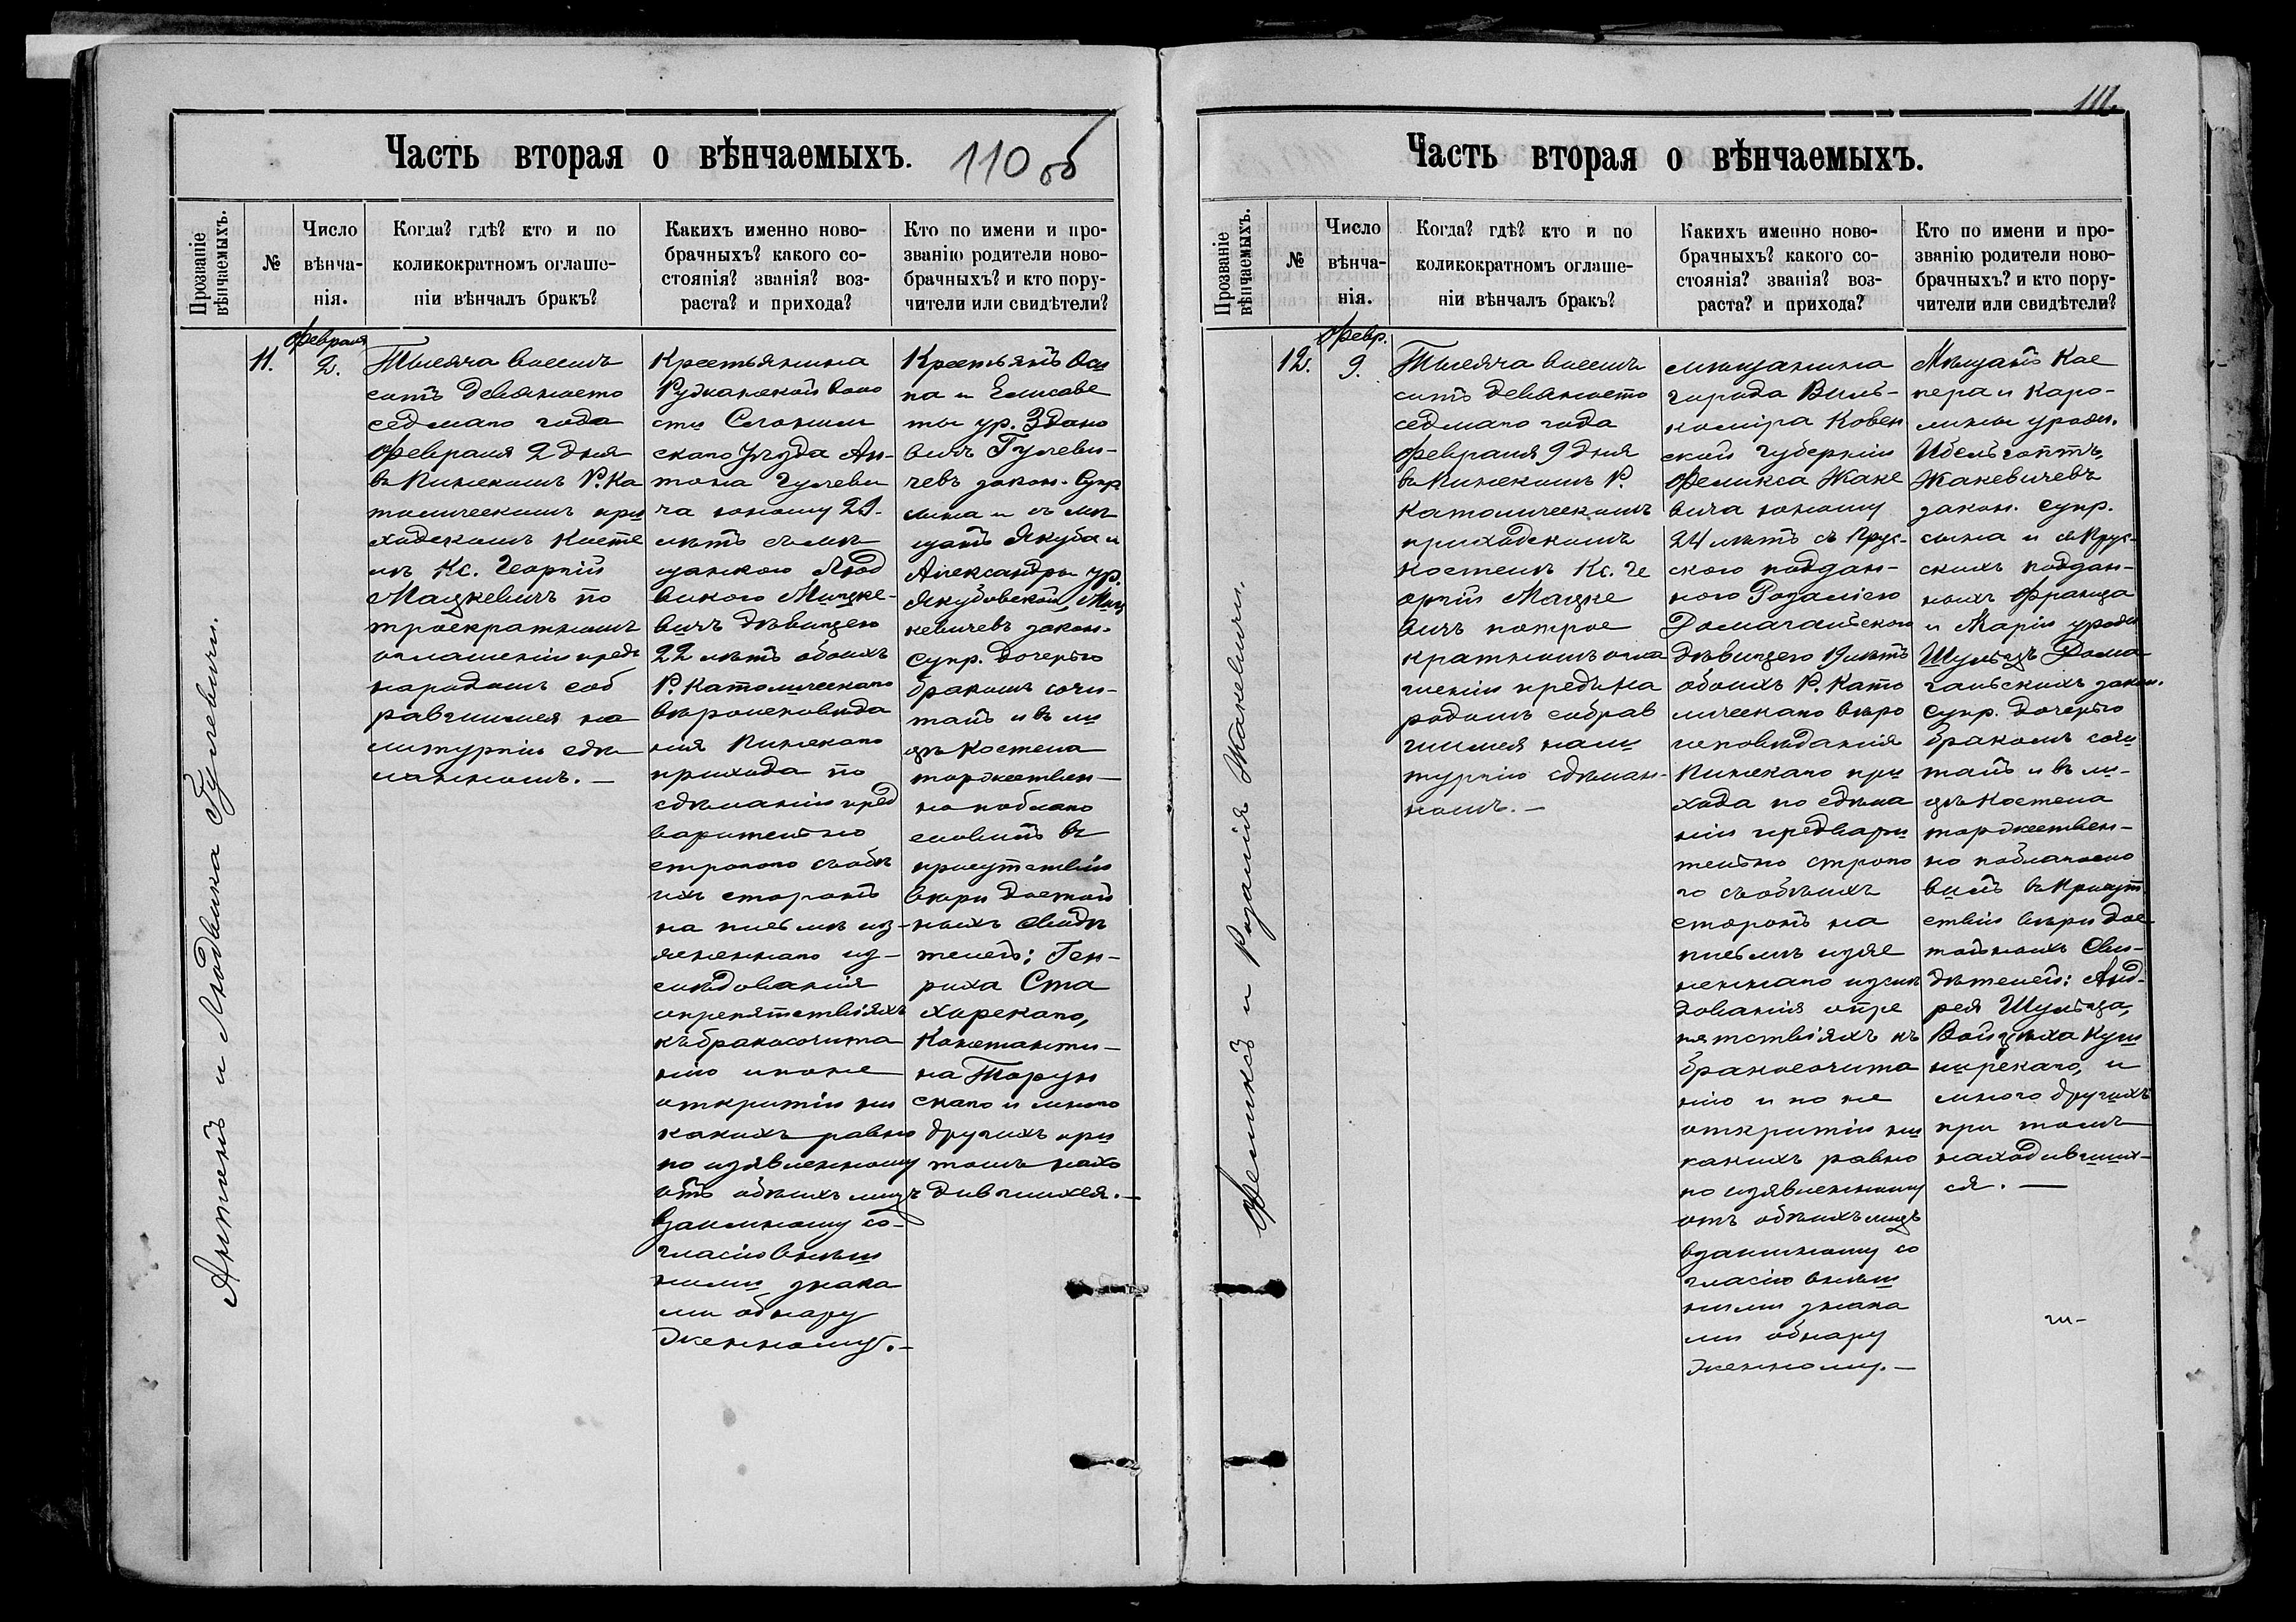 Часть вторая о вѣнчаемыхъ.
110 об
Прозваніе вѣнчаемыхъ.
№
Число вѣнча-
нія.
Когда? гдѣ? кто и по
коликократномъ оглаше-
ніи вѣнчалъ бракъ?
Какихъ именно ново-
брачныхъ? какого со-
стоянія? званія? воз-
раста? и прихода?
Кто по имени и про-
званію родители ново-
брачныхъ? и кто пору-
чители или свидѣтели?
Антонъ и Людвика Гулевичи.
11.
Февраля
2.
Тысяча восемь
сотъ девяносто
седмаго года
Февраля 2 дня
въ Пинскомъ Р. Ка
толическомъ при
ходскомъ косте
лѣ Кс. Георгій
Мацкевичъ по
троекратномъ
оглашеніи предъ
народомъ соб
равшимся на
литургіи сдѣ
ланномъ. —
Крестьянина
Волo
сти Слоним
скаго уѣзда Ан-
тона Гулеви
ча юношу
лѣтъ съ мѣ
щанкою Люд
викою Мицке-
вичъ дѣвицею
22 лѣтъ обоихъ
Р. Католическаго
вѣроисповѣда
нія Пинскаго
прихода по
сдѣланіи пред
варительно
строгаго съ обѣ
ихъ сторонъ
на письмѣ из-
ясненнаго из-
слѣдованія
о препятствіяхъ
къ бракосочета
нію и по не
открытіи ни
какихъ равно
по изявленному
отъ обѣихъ лицъ
взаимному со-
гласію внѣш
ними знака
ми обнару
женному. —
Крестьянъ Оси
па и Елисаве
ты ур. Здано
вичъ Гулеви-
чевъ закон. Супр
сына и съ мѣ
щанъ Якуба и
Александры ур.
Якубовской Миц
кевичевъ закон.
Супр. дочерью
бракомъ соче-
талъ и въ ли
цѣ костела
торжествен-
но поблаго
словилъ въ
присутствіи
вѣри достой
ныхъ свидѣ
телей: Ген-
риха Ста
хорскаго,
Константи-
на Торун
скаго и много
другихъ при
томъ нахо
дившихся. —
111.
Часть вторая о вѣнчаемыхъ.
Прозваніе вѣнчаемыхъ.
№
Число вѣнча-
нія.
Когда? гдѣ? кто и по
коликократномъ оглаше-
ніи вѣнчалъ бракъ?
Какихъ именно ново-
брачныхъ? какого со-
стоянія? званія? воз-
раста? и прихода?
Кто по имени и про-
званію родители ново-
брачныхъ? и кто пору-
чители или свидѣтели?
Феликсъ и Розалія Жакевичи.
12.
Февр.
9.
Тысяча восемь
сотъ девяносто
седмаго года
Февраля 9 дня
въ Пинскомъ Р.
Католическомъ
приходскомъ
костелѣ Кс. Ге
оргій Мацке
вичъ по трое
кратномъ огла
шеніи предъ на
родомъ собрав
шимся на ли
тургію сдѣлан-
номъ. —
мѣщанина
города Виль-
коміра Ковен
ской Губерніи
Феликса Жаке
вича юношу
24 лѣтъ съ Прус-
ского поддан-
ною Розаліею
Домагальскою
дѣвицею 19 лѣтъ
обоихъ Р. Като
лическаго вѣро
исповѣданія
Пинскаго при
хода по сдѣла
ніи предвари
тельно строга
го съ обѣихъ
сторонъ на
письмѣ изяс
неннаго изслѣ
дованія о пре
пятствіяхъ къ
бракосочета
нію и по не
открытіи ни
какихъ равно
по изявленному
отъ обѣихъ лицъ
взаимному со
гласію внѣш
ними знака
ми обнару
женному. —
Мѣщанъ Кас
пера и Каро-
лины урожд.
Жакевичевъ
закон. супр.
сына и съ Прус-
скихъ поддан-
ныхъ Франца
и Маріи урожд
Шульцъ Дома
гальскихъ закон.
Супр. дочерью
бракомъ соче
талъ и въ ли-
цѣ костела
торжествен-
но поблагосло
вилъ въ присут
ствіи вѣри дос
тойныхъ сви-
дѣтелей: Анд-
рея Шульца,
Войцѣха Куш
нирскаго, и
много другихъ
при томъ
находивших-
ся. —